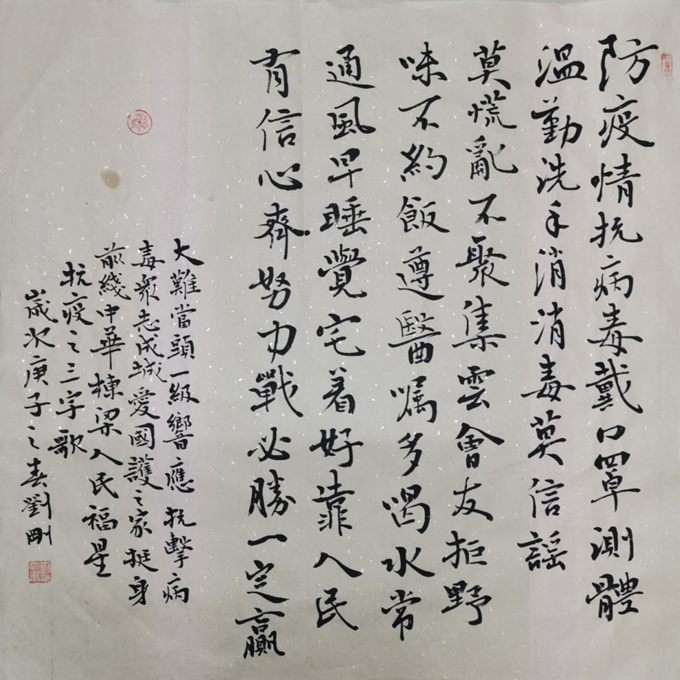 防疫情抗病毒戴口罩測體
溫勤洗手消消毒莫信謠
莫慌亂不聚集雲會友拒野
味不約飯遵醫嘱多喝水常
通風早睡覺宅着好靠人民
有信心齊努力戰必勝一定贏
大難當頭一級響應抗擊病
毒衆志成城愛國護之家挺身
前綫中華棟梁人民福星
抗疫之三字歌
歲次庚子之春劉剛